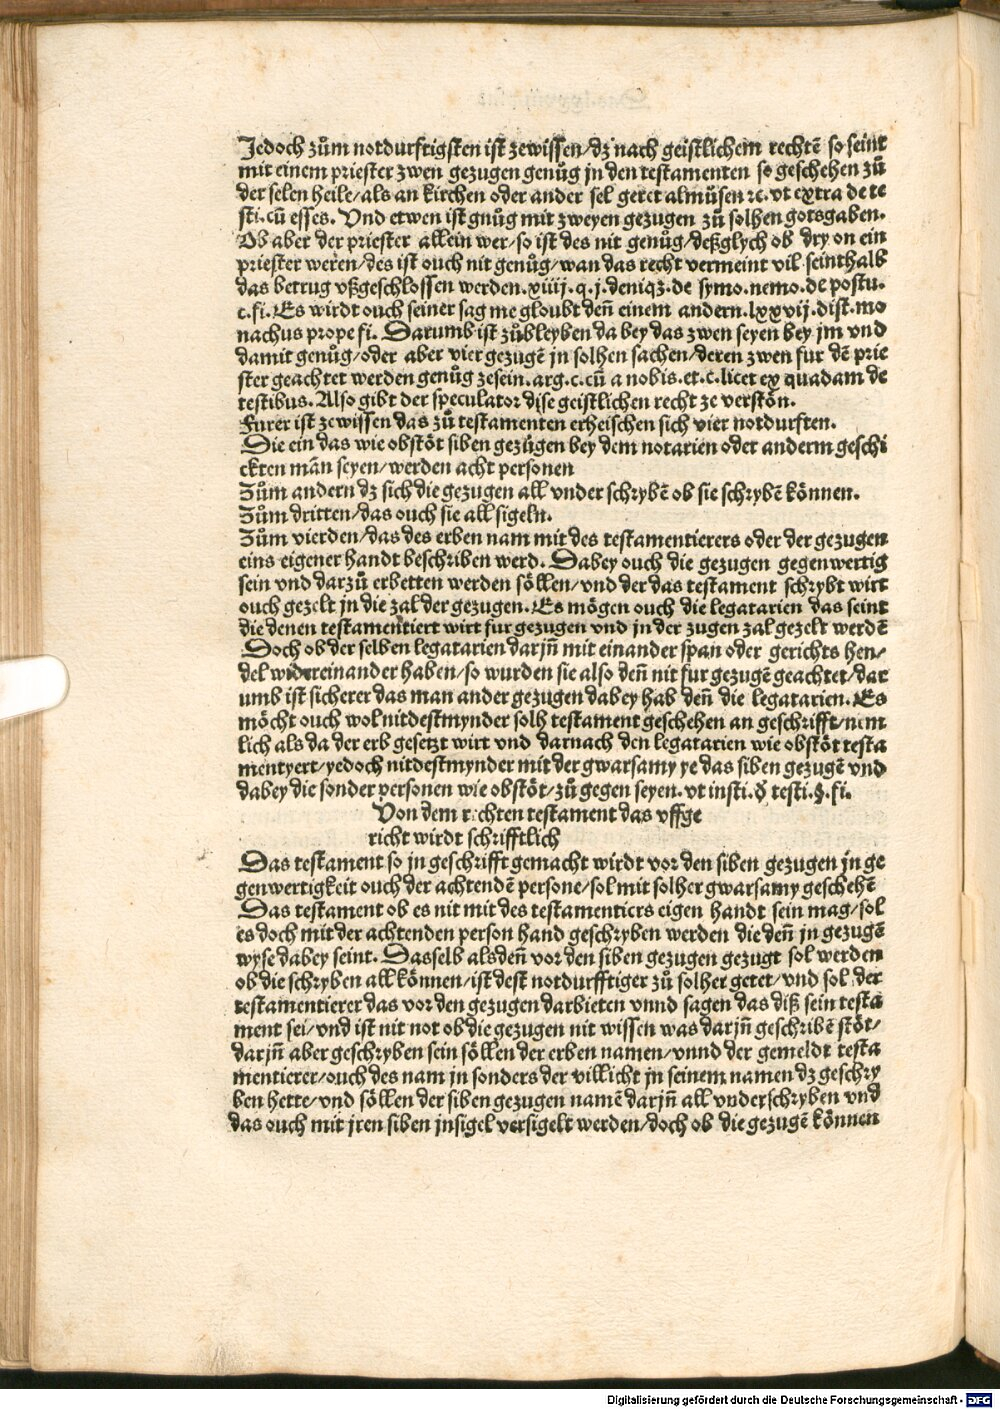 Jedoch zům notdurftigsten ist zewissen/dz nach geistlichem rechtē so seint
mit einem priester zwen gezugen genůg jn den testamenten so geschehen zů
der selen heile/als an kirchen oder ander sel geret almůsen ꝛc. vt extra de te
sti. cū esses. Vnd etwen ist gnůg mit zweyen gezugen zů solhen gotsgaben.
Ob aber der priester allein wer/so ist des nit genůg/deßglych ob dry on ein
priester weren/des ist ouch nit genůg/wan das recht vermeint vil seinthalb
das betrug vßgeschlossen werden. xiiij. q. j. deniqꝫ. de symo. nemo. de postu.
c. fi. Es wirdt ouch seiner sag me gloubt deñ einem andern. lxxvij. dist. mo
nachus prope fi. Darumb ist zůbleyben da bey das zwen seyen bey jm vnd
damit genůg/oder aber vier gezugē jn solhen sachen/deren zwen fur dē prie
ster geachtet werden genůg zesein. arg. c. cū a nobis. et. c. licet ex quadam de
testibus. Also gibt der speculator dise geistlichen recht ze verstōn.
Furer ist zewissen das zů testamenten erheischen sich vier notdurften.
Die ein das wie obstöt siben gezůgen bey dem notarien oder anderm geschi
ckten mān seyen/werden acht personen
Zům andern dz sich die gezugen all vnder schrybē ob sie schrybē können.
Zům dritten/das ouch sie all sigeln.
Zům vierden/das des erben nam mit des testamentierers oder der gezugen
eins eigener handt beschriben werd. Dabey ouch die gezugen gegenwertig
sein vnd darzů erbetten werden söllen/vnd der das testament schrybt wirt
ouch gezelt jn die zal der gezugen. Es mögen ouch die legatarien das seint
die denen testamentiert wirt fur gezugen vnd jn der zugen zal gezelt werdē
Doch ob der selben legatarien darjñ mit einander span oder gerichts hen/
del widereinander haben/so wurden sie also deñ nit fur gezugē geachtet/dar
umb ist sicherer das man ander gezugen dabey hab deñ die legatarien. Es
möcht ouch wol nitdestmynder solh testament geschehen an geschrifft/nem
lich als da der erb gesetzt wirt vnd darnach den legatarien wie obstöt testa
mentyert/yedoch nitdestmynder mit der gwarsamy ye das siben gezugē vnd
dabey die sonder personen wie obstöt/zů gegen seyen. vt insti. ꝺ̄ testi. §. fi.
Von dem rechten testament das vffge
richt wirdt schrifftlich
Das testament so jn geschrifft gemacht wirdt vor den siben gezugen jn ge
genwertigkeit ouch der achtendē persone/sol mit solher gwarsamy geschehē
Das testament ob es nit mit des testamentiers eigen handt sein mag/sol
es doch mit der achtenden person hand geschryben werden die deñ jn gezugē
wyse dabey seint. Dasselb alsdeñ vor den siben gezugen gezugt sol werden
ob die schryben all können/ist dest notdurfftiger zů solher getet/vnd sol der
testamentierer das vor den gezugen darbieten vnnd sagen das diß sein testa
ment sei/vnd ist nit not ob die gezugen nit wissen was darjñ geschribē stöt/
darjñ aber geschryben sein söllen der erben namen/vnnd der gemeldt testa
mentierer/ouch des nam jn sonders der villicht jn seinem namen dz geschry
ben hette/vnd söllen der siben gezugen namē darjñ all vnderschryben vnd
das ouch mit jren siben jnsigel versigelt werden/doch ob die gezugē können
Digitalisierung gefördert durch die Deutsche Forschungsgemeinschaft - DFG